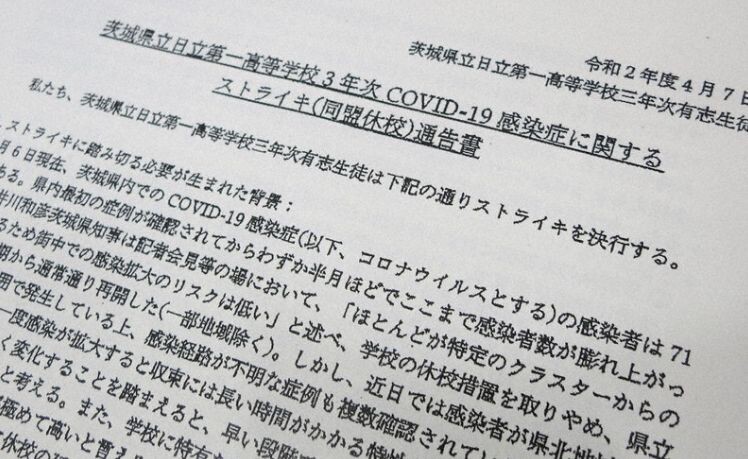 令和2年度4月7日
茨城県立日立第一高等学校三年次有志生徒
茨城県立日立第一高等学校3年次 COVID-19 感染症に関する
ストライキ(同盟休校)通告書
私たち、茨城県立日立第一高等学校三年次有志生徒は下記の通りストライキを決行する。
ストライキに踏み切る必要が生まれた背景：
月6日現在、茨城県内での COVID-19 感染症(以下、コロナウイルスとする)の感染者は 71
ある。県内最初の症例が確認されてからわずか半月ほどでここまで感染者数が膨れ上がっ
井川和彦茨城県知事は記者会見等の場において、「ほとんどが特定のクラスターからの
るため街中での感染拡大のリスクは低い」と述べ、学校の休校措置を取りやめ、県立
期から通常通り再開した(一部地域除く)。しかし、近日では感染者が県北地
用で発生している上、感染経路が不明な症例も複数確認されてい
一度感染が拡大すると収束には長い時間がかかる特性
く変化することを踏まえると、早い段階
と考える。また、学校に特有
極めて高いと言え
休校の